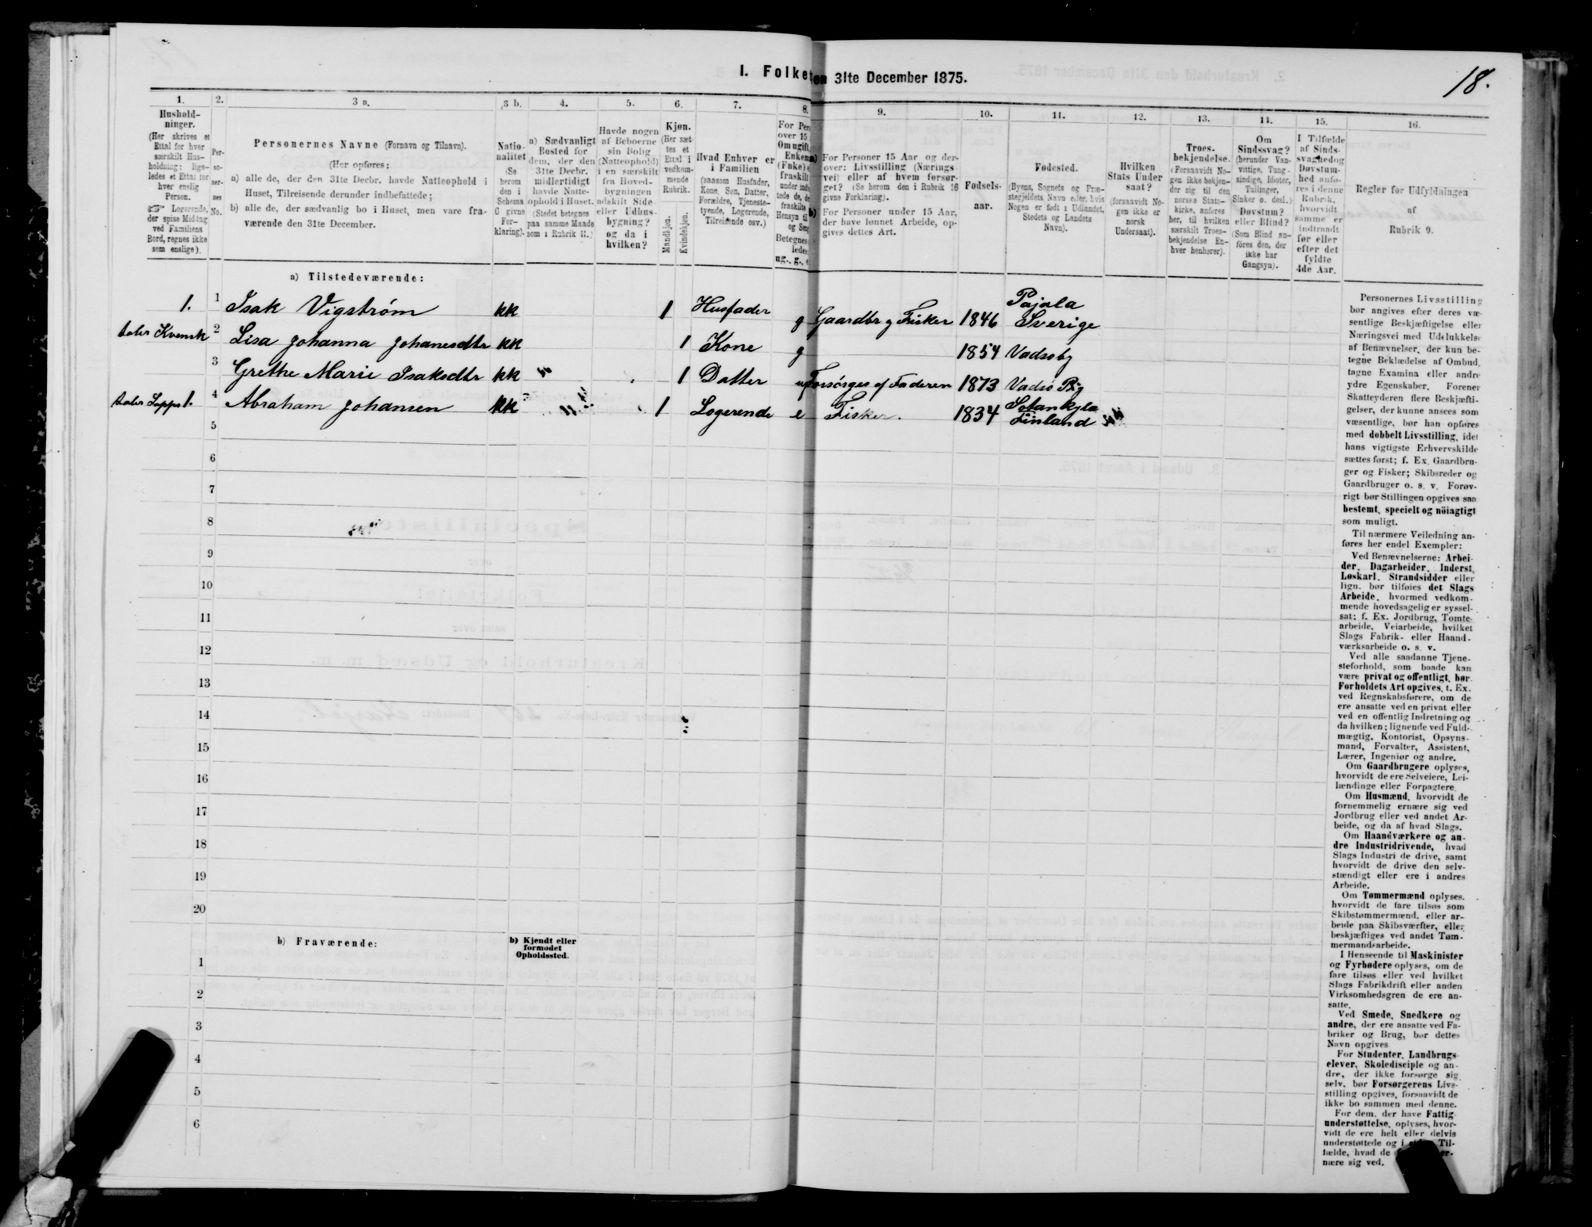 18.
1. Folket den 31te December 1875.
1. 2. 3 a. 3 b. 4. 5. 6. 7. 8. 9. 10. 11. 12. 13. 14. 15. 16.
Husholdninger.
(Her skrives et Ettal for hver særskilt Husholdning; ligeledes et Ettal for hver enslig Person.
Logerende, der spise Middag ved Familiens Bord, regnes ikke som enslige).
Personernes No.
Personernes Navne (Fornavn og Tilnavn).
(Her opføres;
a) alle de, der den 31te Decbr. havde Natteophold i
Huset, Tilreisende derunder indbefattede;
b) alle de, der sædvanlig bo i Huset, men vare fraværende den 31te December.
Nationalitet
(Se herom den i Schema C givne Forklaring).
a) Sædvanligt Bosted for dem, der den 31te Decbr. midlertidigt havde Natteophold i Huset.
(Stedet betegnes paa samme Maade som i Rubrik 11.)
Havde nogen af Beboerne sin Bolig (Natteophold) i en særskilt fra Hovedbygningen adskilt Side- eller Udhusbygning? og da i hvilken?
Kjøn.
(Her sættes et Ettal i vedkommende Rubrik.
Mandkjøn.
Kvindekjøn.
Hvad Enhver er i Familien
(saasom Husfader, Kone, Søn, Datter, Forældre, Tjenestetyende, Logerende, Tilreisende osv.)
For Personer 15 Aar og derover: Livsstilling (Næringsvei) eller af hvem forsørget? (Se herom den i Rubrik 16 givne Forklaring).
For Personer under 15 Aar, der have lønnet Arbeide, opgives dettes Art.
Fødselsaar.
Fødested.
(Byens, Sognets og Præstegjeldets Navn eller, hvis Nogen er født i Udlandet, Stedets og Landets Navn).
Hvilken Stats Undersaat?
(forsaavidt Nogen ikke er norsk Undersaat).
Troesbekjendelse.
(Forsaavidt Nogen ikke bekjender sig til den norske Statskirke, anføres her, til hvilken særskilt Troesbekjendelse Enhver henhører).
Om Sindssvag? (herunder Vanvittige, Tungsindige, Idioter, Tullinger, Sinker o. desl.) Døvstum? eller Blind?
(Som Blind anføres den, der ikke har Gangsyn).
I Tilfælde af Sindssvaghed og Døvstumhed anføres i denne Rubrik, hvorvidt samme er indtraadt før eller efter det fyldte 4de Aar.
Regler for Udfyldningen
af
Rubrik 9.
a) Tilstedeværende:
1. 1 Isak Vigstrøm kk 1 Husfader g Gaardbr og Fisker 1846 Pajala Sverige
taler Kvensk 2 Lisa Johanna Johanesdtr kk 1 Kone g 1854 Vadsø by
3 Grethe Marie Isaksdtr kk 1 Datter ug Forsørges af Faderen 1873 Vadsø
taler Lappe 1. 4 Abraham Johansen kk 1 Logerende e Fisker. 1834 Sotankyla Finland
5
6
7
8
9
10
11
12
13
14
15
16
17
18
19
20
b) Fraværende:
b) Kjendt eller formodet Opholdssted.
1
2
3
4
5
6
Personernes Livsstilling bør angives efter deres væsentlige Beskjæftigelse eller Næringsvei med Udelukkelse af Benævnelser, der kun betegne Beklædelse af Ombud, tagne Examina eller andre ydre Egenskaber. Forener Skatteyderen flere Beskjæftigelser, der kunne ansees som væsentlige, bør han opføres med dobbelt Livsstilling, idet hans vigtigste Erhvervskilde sættes først; f. Ex. Gaardbruger og Fisker; Skibsreder og Gaardbruger o. s. v. Forøvrigt bør Stillingen opgives saa bestemt, specielt og nöiagtigt som muligt.
Til nærmere Veiledning anføres her endel Exempler:
Ved Benævnelserne: Arbeider, Dagarbeider, Inderst, Løskarl, Strandsidder eller lign. bør tilføies det Slags Arbeide, hvormed vedkommende hovedsagelig er sysselsat; f. Ex. Jordbrug, Tomtearbeide, Veiarbeide, hvilket Slags Fabrik- eller Haandværksarbeide o. s. v.
Ved alle saadanne Tjenesteforhold, som baade kan være privat og offentligt, bør Forholdets Art opgives, t. Ex. ved Regnskabsførere, om de ere ansatte ved en privat eller ved en offentlig Indretning og da hvilken; lignende ved Fuldmægtig, Kontorist, Opsynsmand, Forvalter, Assistent, Lærer, Ingeniør og andre.
Om Gaardbrugere oplyses, hvorvidt de ere Selveiere, Leilændinge eller Forpagtere.
Om Husmænd, hvorvidt de fornemmelig ernære sig ved Jordbrug eller ved andet Arbeide, og da af hvad Slags.
Om Haandværkere og andre Industridrivende, hvad Slags Industri de drive, samt hvorvidt de drive den selvstændigt eller ere i andres Arbeide.
Om Tømmermænd oplyses, hvorvidt de fare tilsøs som Skibstømmermænd, eller arbeide paa Skibsværfter, eller beskjæftiges ved andet Tømmermandsarbeide.
I Henseende til Maskinister og Fyrbødere oplyses, om de fare tilsøs eller ved hvilket Slags Fabrikdrift eller anden Virksomhedsgren de ere ansatte.
Ved Smede, Snedkere og andre, der ere ansatte ved Fabriker og Brug, bør dettes Navn opgives
For Studenter, Landbrugselever, Skoledisciple og andre, der ikke forsørge sig selv, bør Forsørgerens Livsstilling opgives, forsaavidt de ikke bo sammen med denne.
For dem, der have Fattigunderstøttelse, oplyses, hvorvidt de ere helt eller delvis understøttede og i
nære sig ved.